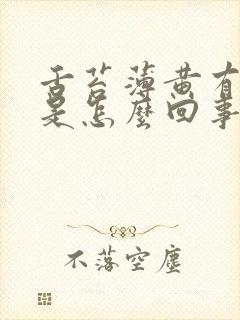 舌苔薄黄有
是怎麼回事
不落空塵